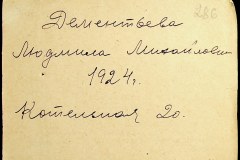 286
Дементьева
Людмила Михайловн
1924г.
Котельная 20.